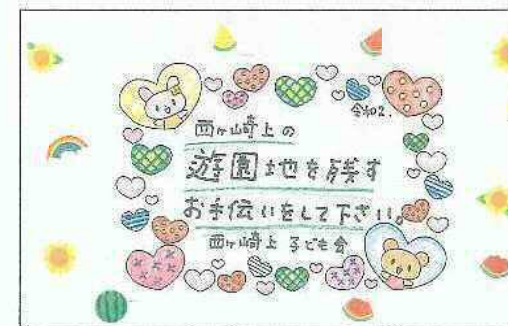 令和2.
西ヶ崎上の
遊園地を残す
お手伝いをして下さい。
西ヶ崎上 子ども会